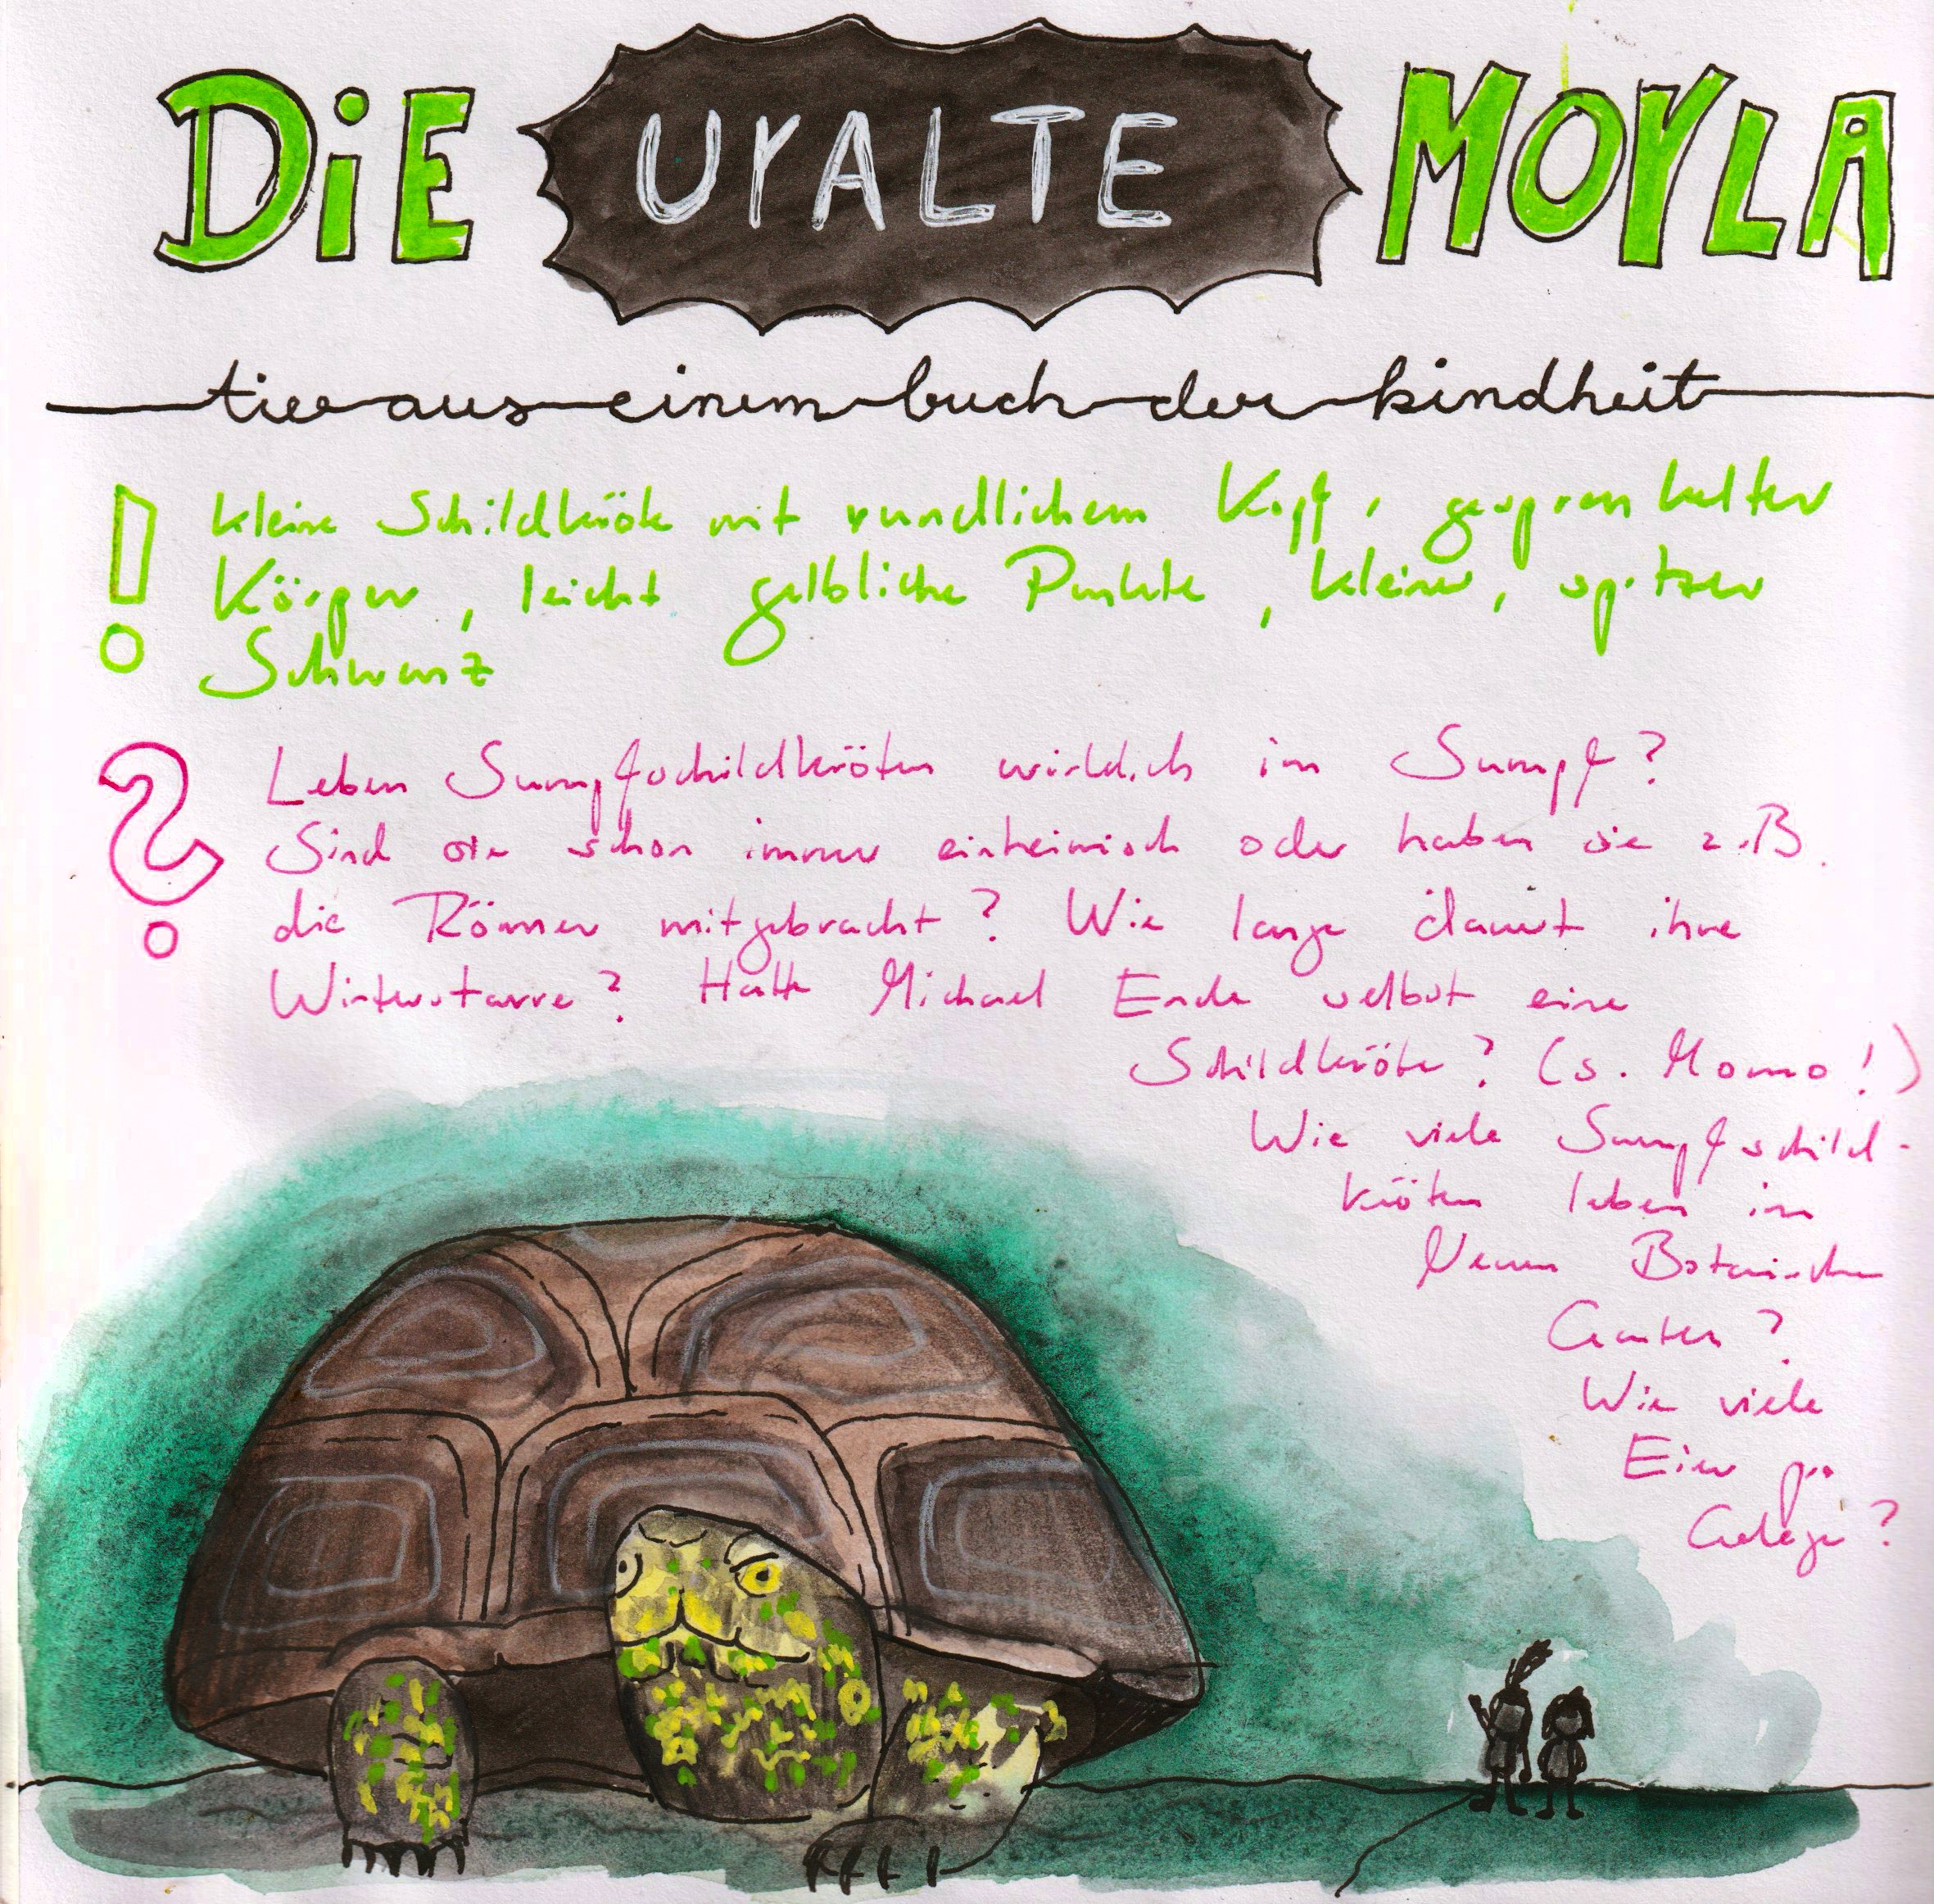 DiE UrALTE MOrLA
tier aus einem buch der kindheit
! kleine Schildkröte mit rundlichem Kopf, gesprenkelter
Körper, leicht gelbliche Punkte, kleiner, spitzer
Schwanz
? Leben Sumpfschildkröten wirklich im Sumpf?
Sind sie schon immer einheimisch oder haben sie z.B.
die Römer mitgebracht? Wie lange dauert ihre
Winterstarre? Hatte Michael Ende selbst eine
Schildkröte? (s. Momo!)
Wie viele Sumpfschild-
kröten leben im
Neuen Botanischen
Garten?
Wie viele
Eier pro
Gelege?